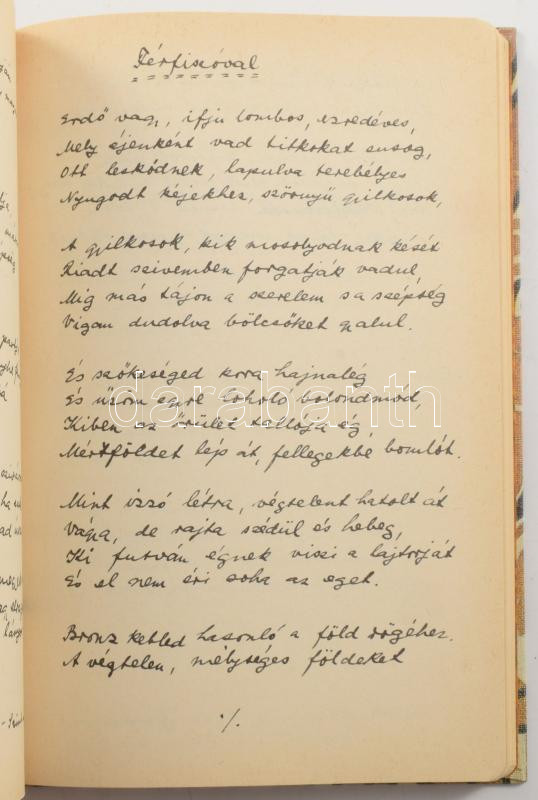 Férfiszóval
Erdő vagy, ifju lombos, ezredéves,
Mely éjenként vad titkokat susog,
Ott leskődnek, lapulva terebélyes
Nyugodt kéjekhez, szörnyű gyilkosok,
A gyilkosok, kik mosolyodnak kését
Riadt szivemben forgatják vadul,
Mig más tájon a szerelem s a szépség
Vigan dudolva bölcsőket gyalul.
És szőkeséged kora hajnalég
És üzöm egyre loholó bolondmód,
Kiben az őrület tallója ég
Mértföldet lép át, fellegekbe bomlót.
Mint izzó létra, végtelent hatolt át
Vágya, de rajta szédül és hebeg,
Ki futván égnek viszi a lajtorját
És el nem éri soha az eget.
Bronz kebled hasonló a föld rögéhez.
A végtelen, mélységes földeket
./.
darabanth